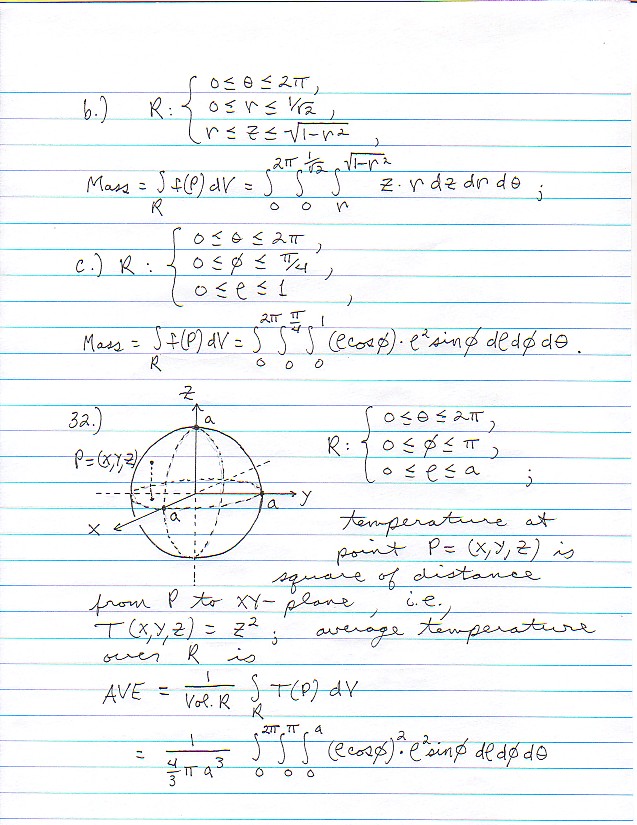 b.) R: { 0 ≤ θ ≤ 2π,
0 ≤ r ≤ 1/√2 ,
r ≤ z ≤ √1-r² ,
Mass = ∫_R f(P) dV = ∫_0^{2π} ∫_0^{1/√2} ∫_r^{√1-r²} z · r dz dr dθ ;
c.) R : { 0 ≤ θ ≤ 2π ,
0 ≤ ϕ ≤ π/4 ,
0 ≤ ρ ≤ 1 ,
Mass = ∫_R f(P) dV = ∫_0^{2π} ∫_0^{π/4} ∫_0^1 (ρcosϕ)·ρ² sinϕ dρ dϕ dθ .
32.)
z
a
P=(x,y,z)
a
a
y
x
R: { 0 ≤ θ ≤ 2π,
0 ≤ ϕ ≤ π ,
0 ≤ ρ ≤ a ;
temperature at
point P = (x,y,z) is
square of distance
from P to xy-plane, i.e.,
T(x,y,z) = z² ; average temperature
over R is
AVE = 1/Vol.R ∫_R T(P) dV
= 1/(4/3 π a³) ∫_0^{2π} ∫_0^π ∫_0^a (ρcosϕ)²·ρ² sinϕ dρ dϕ dθ